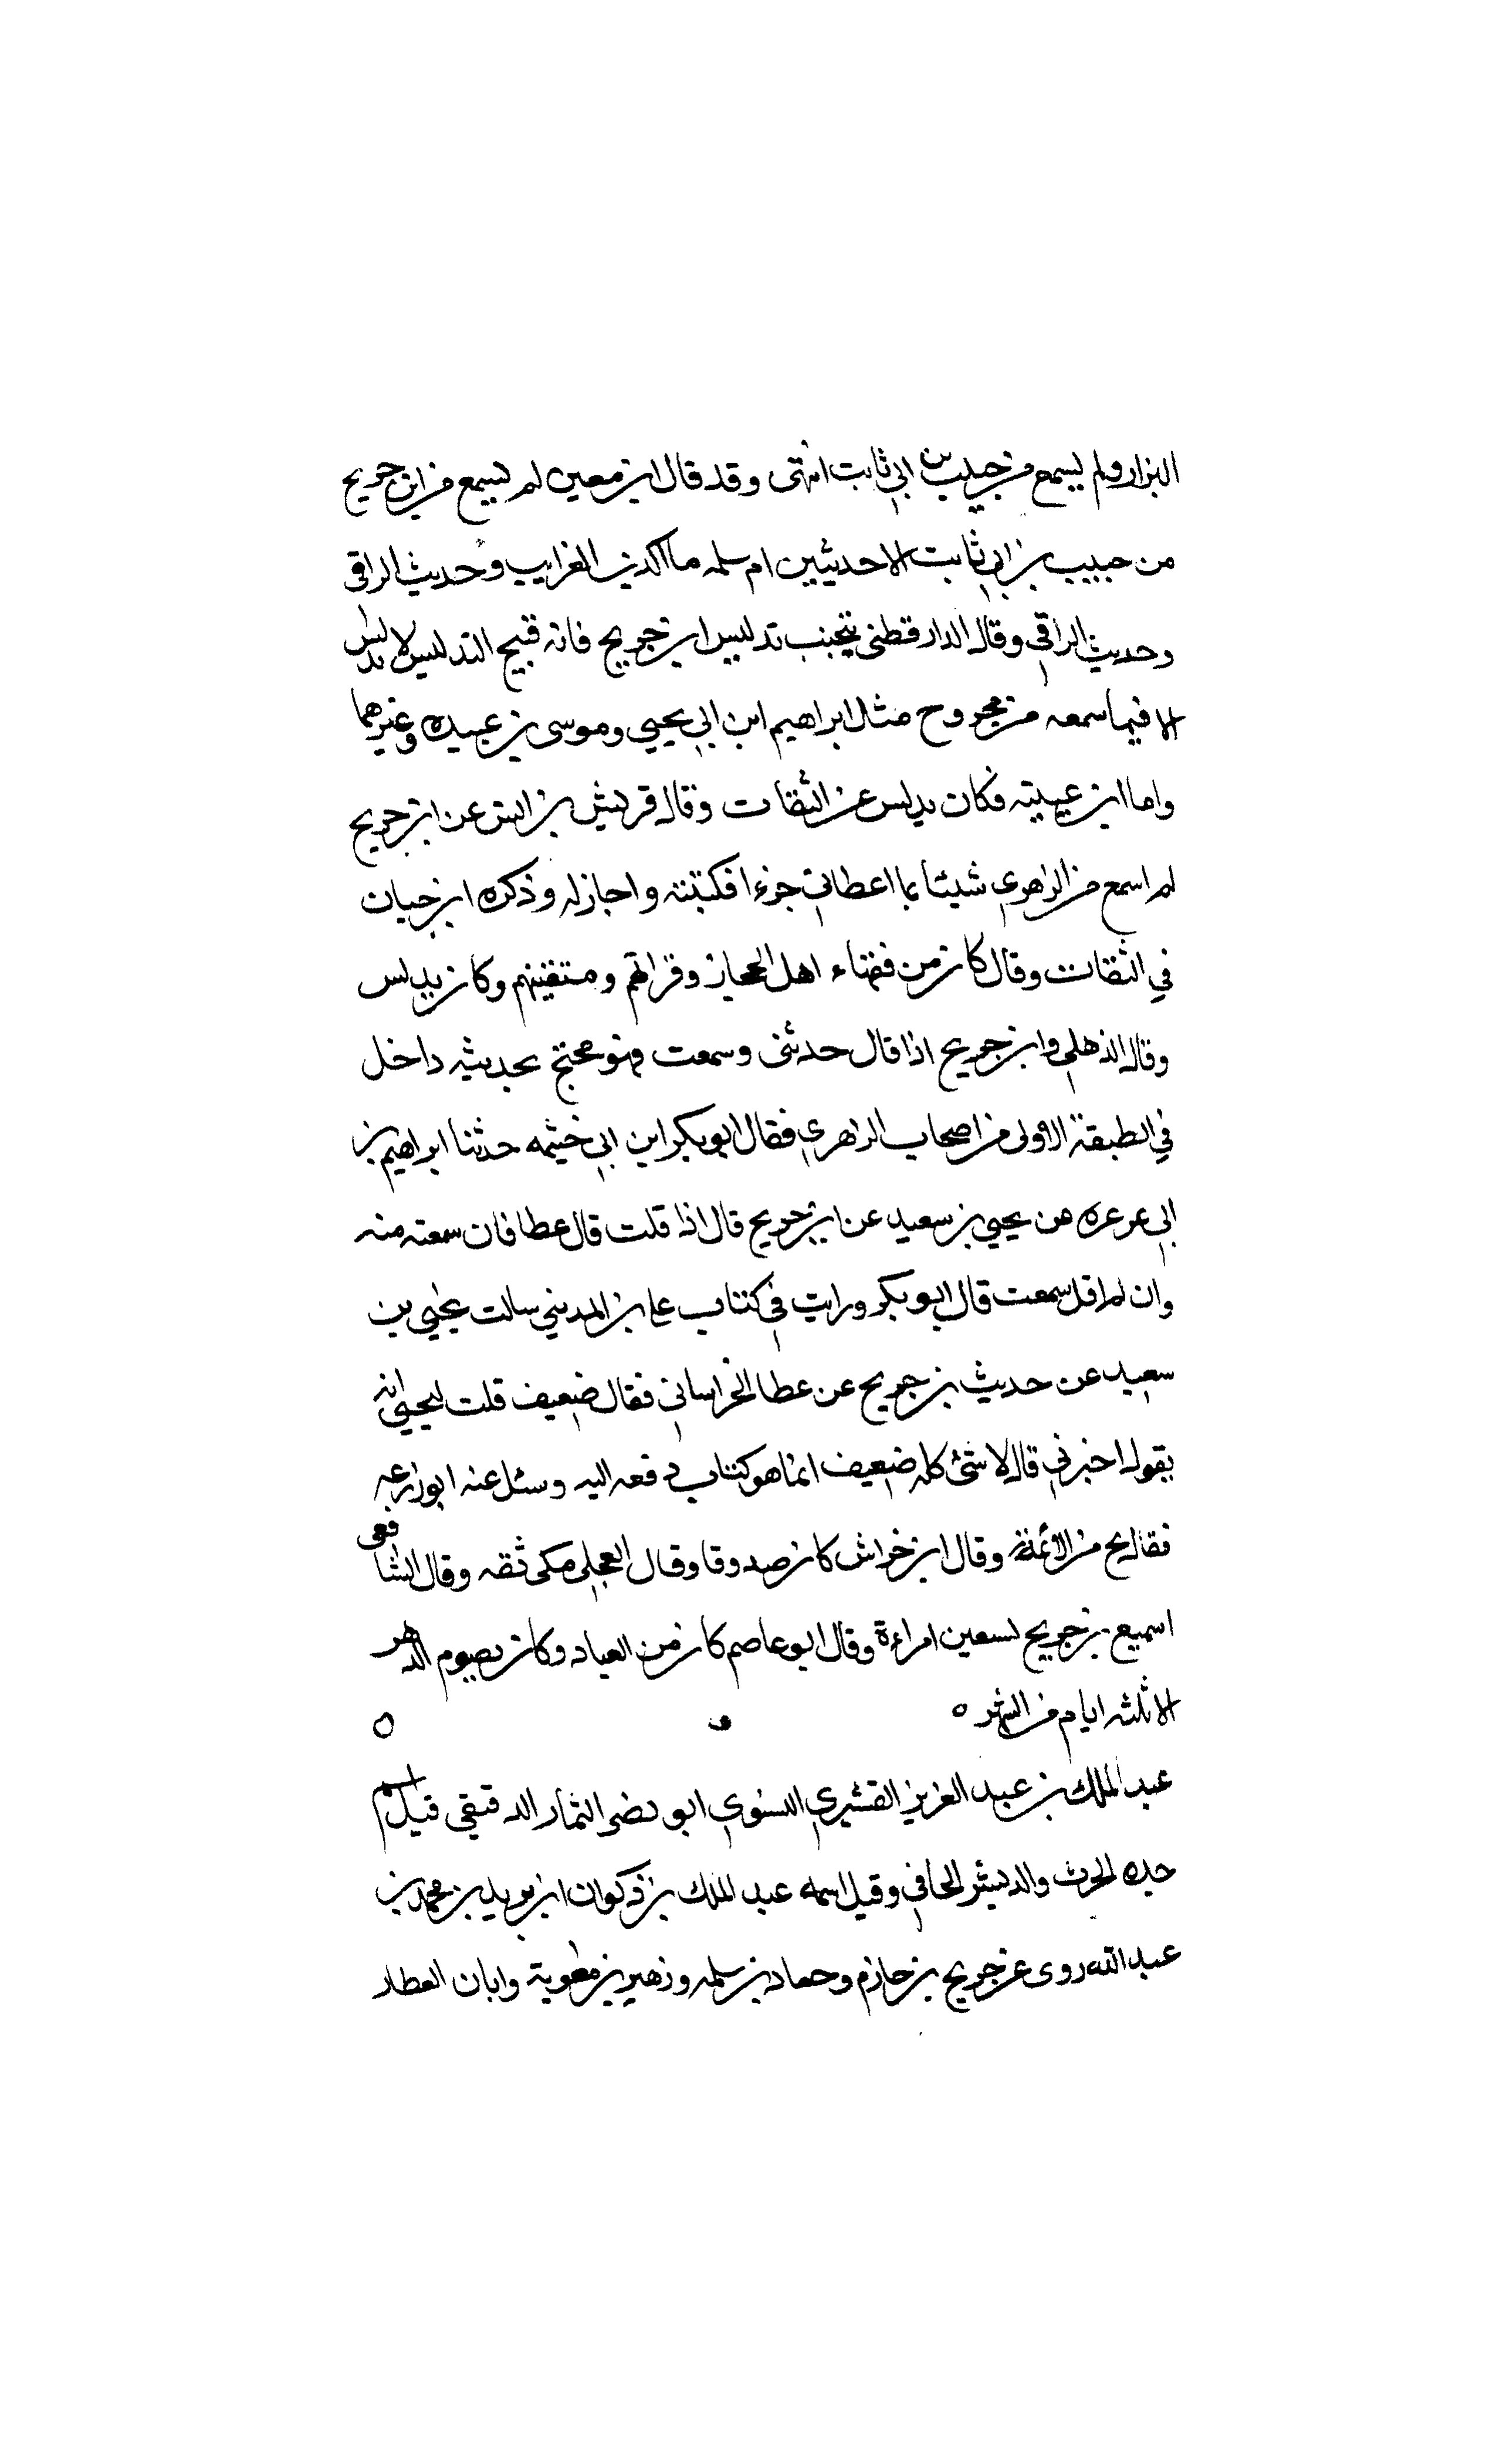 البزار ولم يسمع من حبيب بن ابي ثابت انتهى وقد قال ابن معين لم يسمع من ابن جريج
من حبيب بن ابي ثابت الا حديثين ام سلمه ما اكذب الغرايب وحديث الراقى
وحديث الراقي وقال الدارقطنى يتجنب تدليس ابن جريج فانه قبيح التدليس لا يدلس
الا فيما سمعه من مجروح مثال ابراهيم ابن ابي يحيى وموسى بن عبيده وغيرهما
واما ابن عيينه فكان يدلس عن الثقات وقال قريش بن انس عن ابن جريج
لم اسمع من الزاهرى شيئا بما اعطاني جزءا فكتبته واجاز له وذكره ابن حبان
في الثقات وقال كان من فقهاء اهل الحجاز وقرائهم ومتقنيهم وكان يدلس
وقال الذهلي وابن جريج اذا قال حدثنى وسمعت فهو محتج بحديثه داخل
في الطبقة الاولى من اصحاب الزاهري فقال ابو بكر ابن ابي خيثمه حدثنا ابراهيم بن
ابي عرعره عن يحيى بن سعيد عن ابن جريج قال اذا قلت قال عطا فان سمعته منه
وان لم اقل سمعت قال ابو بكر ورايت في كتاب علي بن المديني سالت يحيى بن
سعيد عن حديث بن جريج عن عطا الخراساني فقال ضعيف قلت ليحيى انه
يقول اخبرني قال لا شئ كله ضعيف انما هو كتاب دفعه اليه وسئل عنه ابو زرعه
فقال بخ من الائمة وقال ابن خراش كان صدوقا وقال العجلي مكى ثقه وقال الشافعى
اسميع بن جريج لسعين امراءة وقال ابو عاصم كان من العباد وكان يصوم الدهر
الا ثلثه ايام من الشهر ٥ ٥
عبد الملك بن عبد العزيز القشيري النسوي ابو نصر التمار الدقيقي قيل اسم
جده الحرث والد بشر الحافي وقيل اسمه عبد الملك بن ذكوان ابن يزيد بن محمد بن
عبد الله روى عن جريج بن حازم وحماد بن سلمه وزهير بن معوية وابان العطار